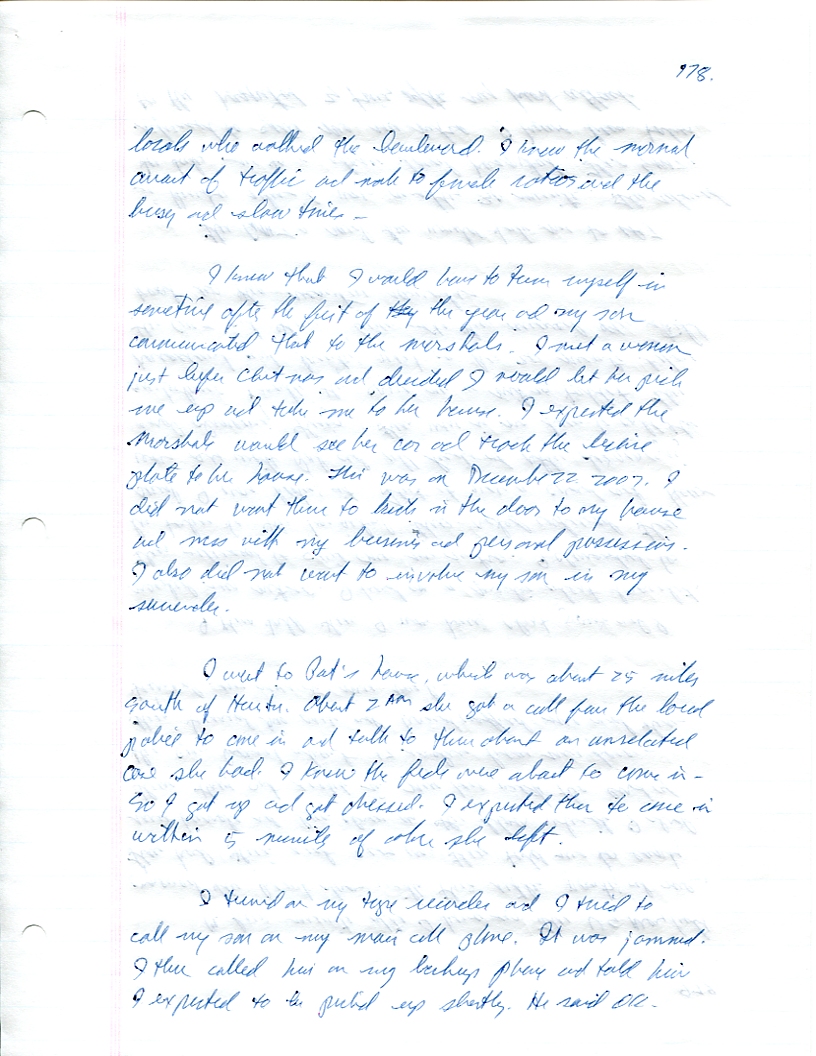 978.
locals who walked the boulevard. I knew the normal
amount of traffic and male to female ratios and the
busy and slow times –
I knew that I would have to turn myself in
sometime after the first of the year and my son
communicated that to the marshals. I met a woman
just before Christmas and decided I would let her pick
me up and take me to her house. I expected the
Marshals would see her car and track the license
plate to her house. This was on December 22 2007. I
did not want them to kick in the door to my house
and mess with my business and personal possessions.
I also did not want to involve my son in my
surrender.
I went to Pat's house, which was about 25 miles
South of About 2 AM she got a call from the local
police to come in and talk to them about an unrelated
case she had. I knew the feds were about to come in –
So I got up and got dressed. I expected them to come in
within 5 minutes of when she left.
I turned on my tape recorder and I tried to
call my son on my main cell phone. It was jammed.
I then called him on my backup phone and told him
I expected to be picked up shortly. He said OK –